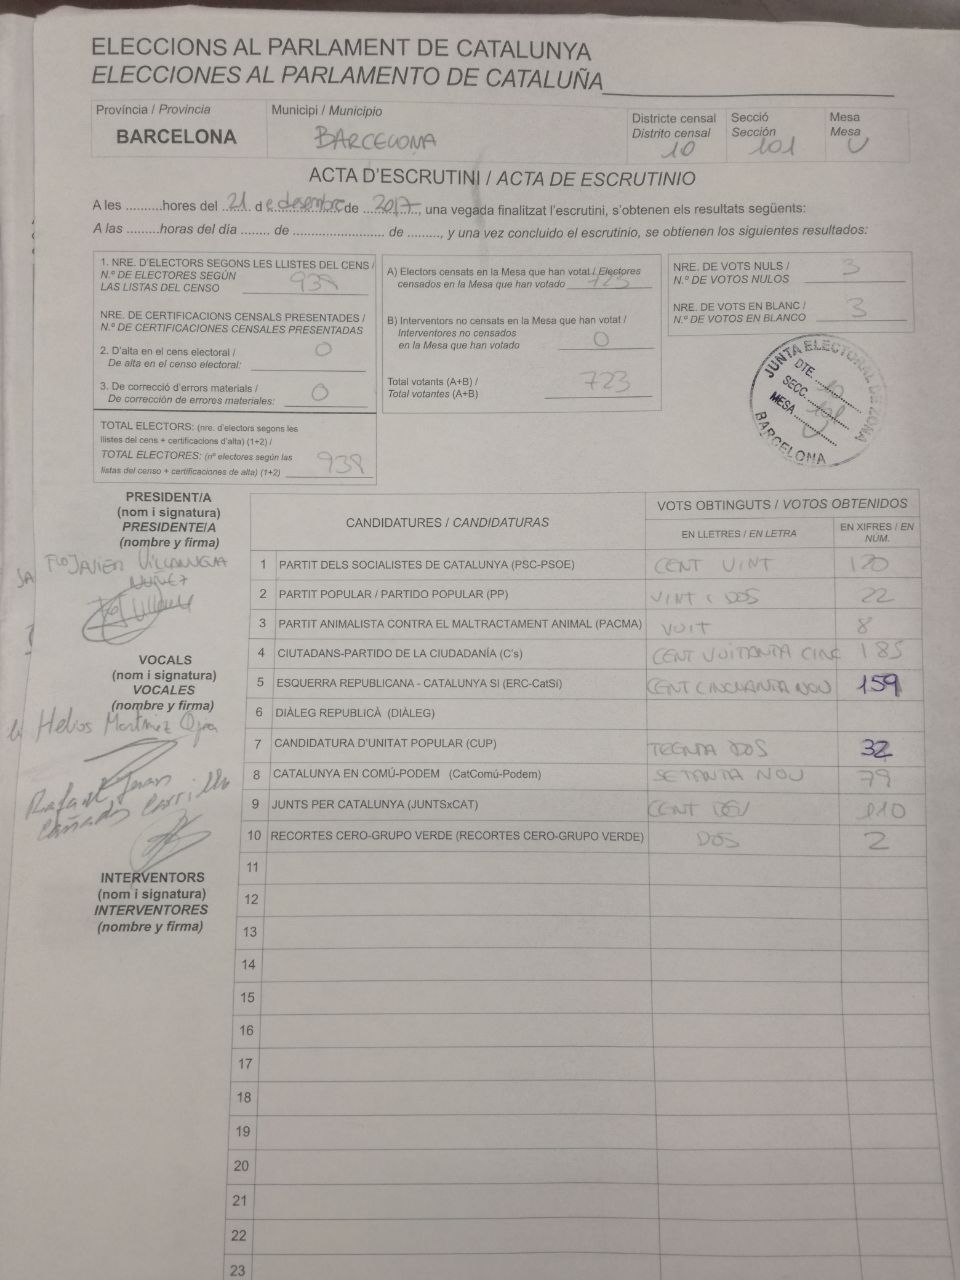 ELECCIONS AL PARLAMENT DE CATALUNYA
ELECCIONES AL PARLAMENTO DE CATALUÑA
Província / Provincia
BARCELONA
Municipi / Municipio
BARCELONA
Districte censal
Distrito censal
10
Secció
Sección
101
Mesa
Mesa
U
ACTA D'ESCRUTINI / ACTA DE ESCRUTINIO
A les ..........hores del 21 de desembre de 2017, una vegada finalitzat l'escrutini, s'obtenen els resultats següents:
A las .........horas del día ........ de ........................ de ........., y una vez concluido el escrutinio, se obtienen los siguientes resultados:
1. NRE. D'ELECTORS SEGONS LES LLISTES DEL CENS /
N.º DE ELECTORES SEGÚN
LAS LISTAS DEL CENSO 938
NRE. DE CERTIFICACIONS CENSALS PRESENTADES /
N.º DE CERTIFICACIONES CENSALES PRESENTADAS
2. D'alta en el cens electoral /
De alta en el censo electoral: 0
3. De correcció d'errors materials /
De corrección de errores materiales: 0
TOTAL ELECTORS: (nre. d'electors segons les
llistes del cens + certificacions d'alta) (1+2) /
TOTAL ELECTORES: (nº electores según las
listas del censo + certificaciones de alta) (1+2) 938
A) Electors censats en la Mesa que han votat / Electores
censados en la Mesa que han votado 723
B) Interventors no censats en la Mesa que han votat /
Interventores no censados
en la Mesa que han votado 0
Total votants (A+B) /
Total votantes (A+B) 723
NRE. DE VOTS NULS /
N.º DE VOTOS NULOS 3
NRE. DE VOTS EN BLANC /
N.º DE VOTOS EN BLANCO 3
JUNTA ELECTORAL DE ZONA
DTE. 10
SECC. 101
MESA U
BARCELONA
PRESIDENT/A
(nom i signatura)
PRESIDENTE/A
(nombre y firma)
Fco JAVIER
VOCALS
(nom i signatura)
VOCALES
(nombre y firma)
Helios Martínez
Rafael Juan
Cañadas Carrillo
INTERVENTORS
(nom i signatura)
INTERVENTORES
(nombre y firma)
CANDIDATURES / CANDIDATURAS
VOTS OBTINGUTS / VOTOS OBTENIDOS
EN LLETRES / EN LETRA
EN XIFRES / EN NÚM.
1 PARTIT DELS SOCIALISTES DE CATALUNYA (PSC-PSOE) CENT VINT 120
2 PARTIT POPULAR / PARTIDO POPULAR (PP) VINT I DOS 22
3 PARTIT ANIMALISTA CONTRA EL MALTRACTAMENT ANIMAL (PACMA) VUIT 8
4 CIUTADANS-PARTIDO DE LA CIUDADANÍA (C's) CENT VUITANTA CINC 185
5 ESQUERRA REPUBLICANA - CATALUNYA SÍ (ERC-CatSí) CENT CINCUANTA NOU 159
6 DIÀLEG REPUBLICÀ (DIÀLEG)
7 CANDIDATURA D'UNITAT POPULAR (CUP) TRENTA DOS 32
8 CATALUNYA EN COMÚ-PODEM (CatComú-Podem) SETANTA NOU 79
9 JUNTS PER CATALUNYA (JUNTSxCAT) CENT DEU 110
10 RECORTES CERO-GRUPO VERDE (RECORTES CERO-GRUPO VERDE) DOS 2
11
12
13
14
15
16
17
18
19
20
21
22
23